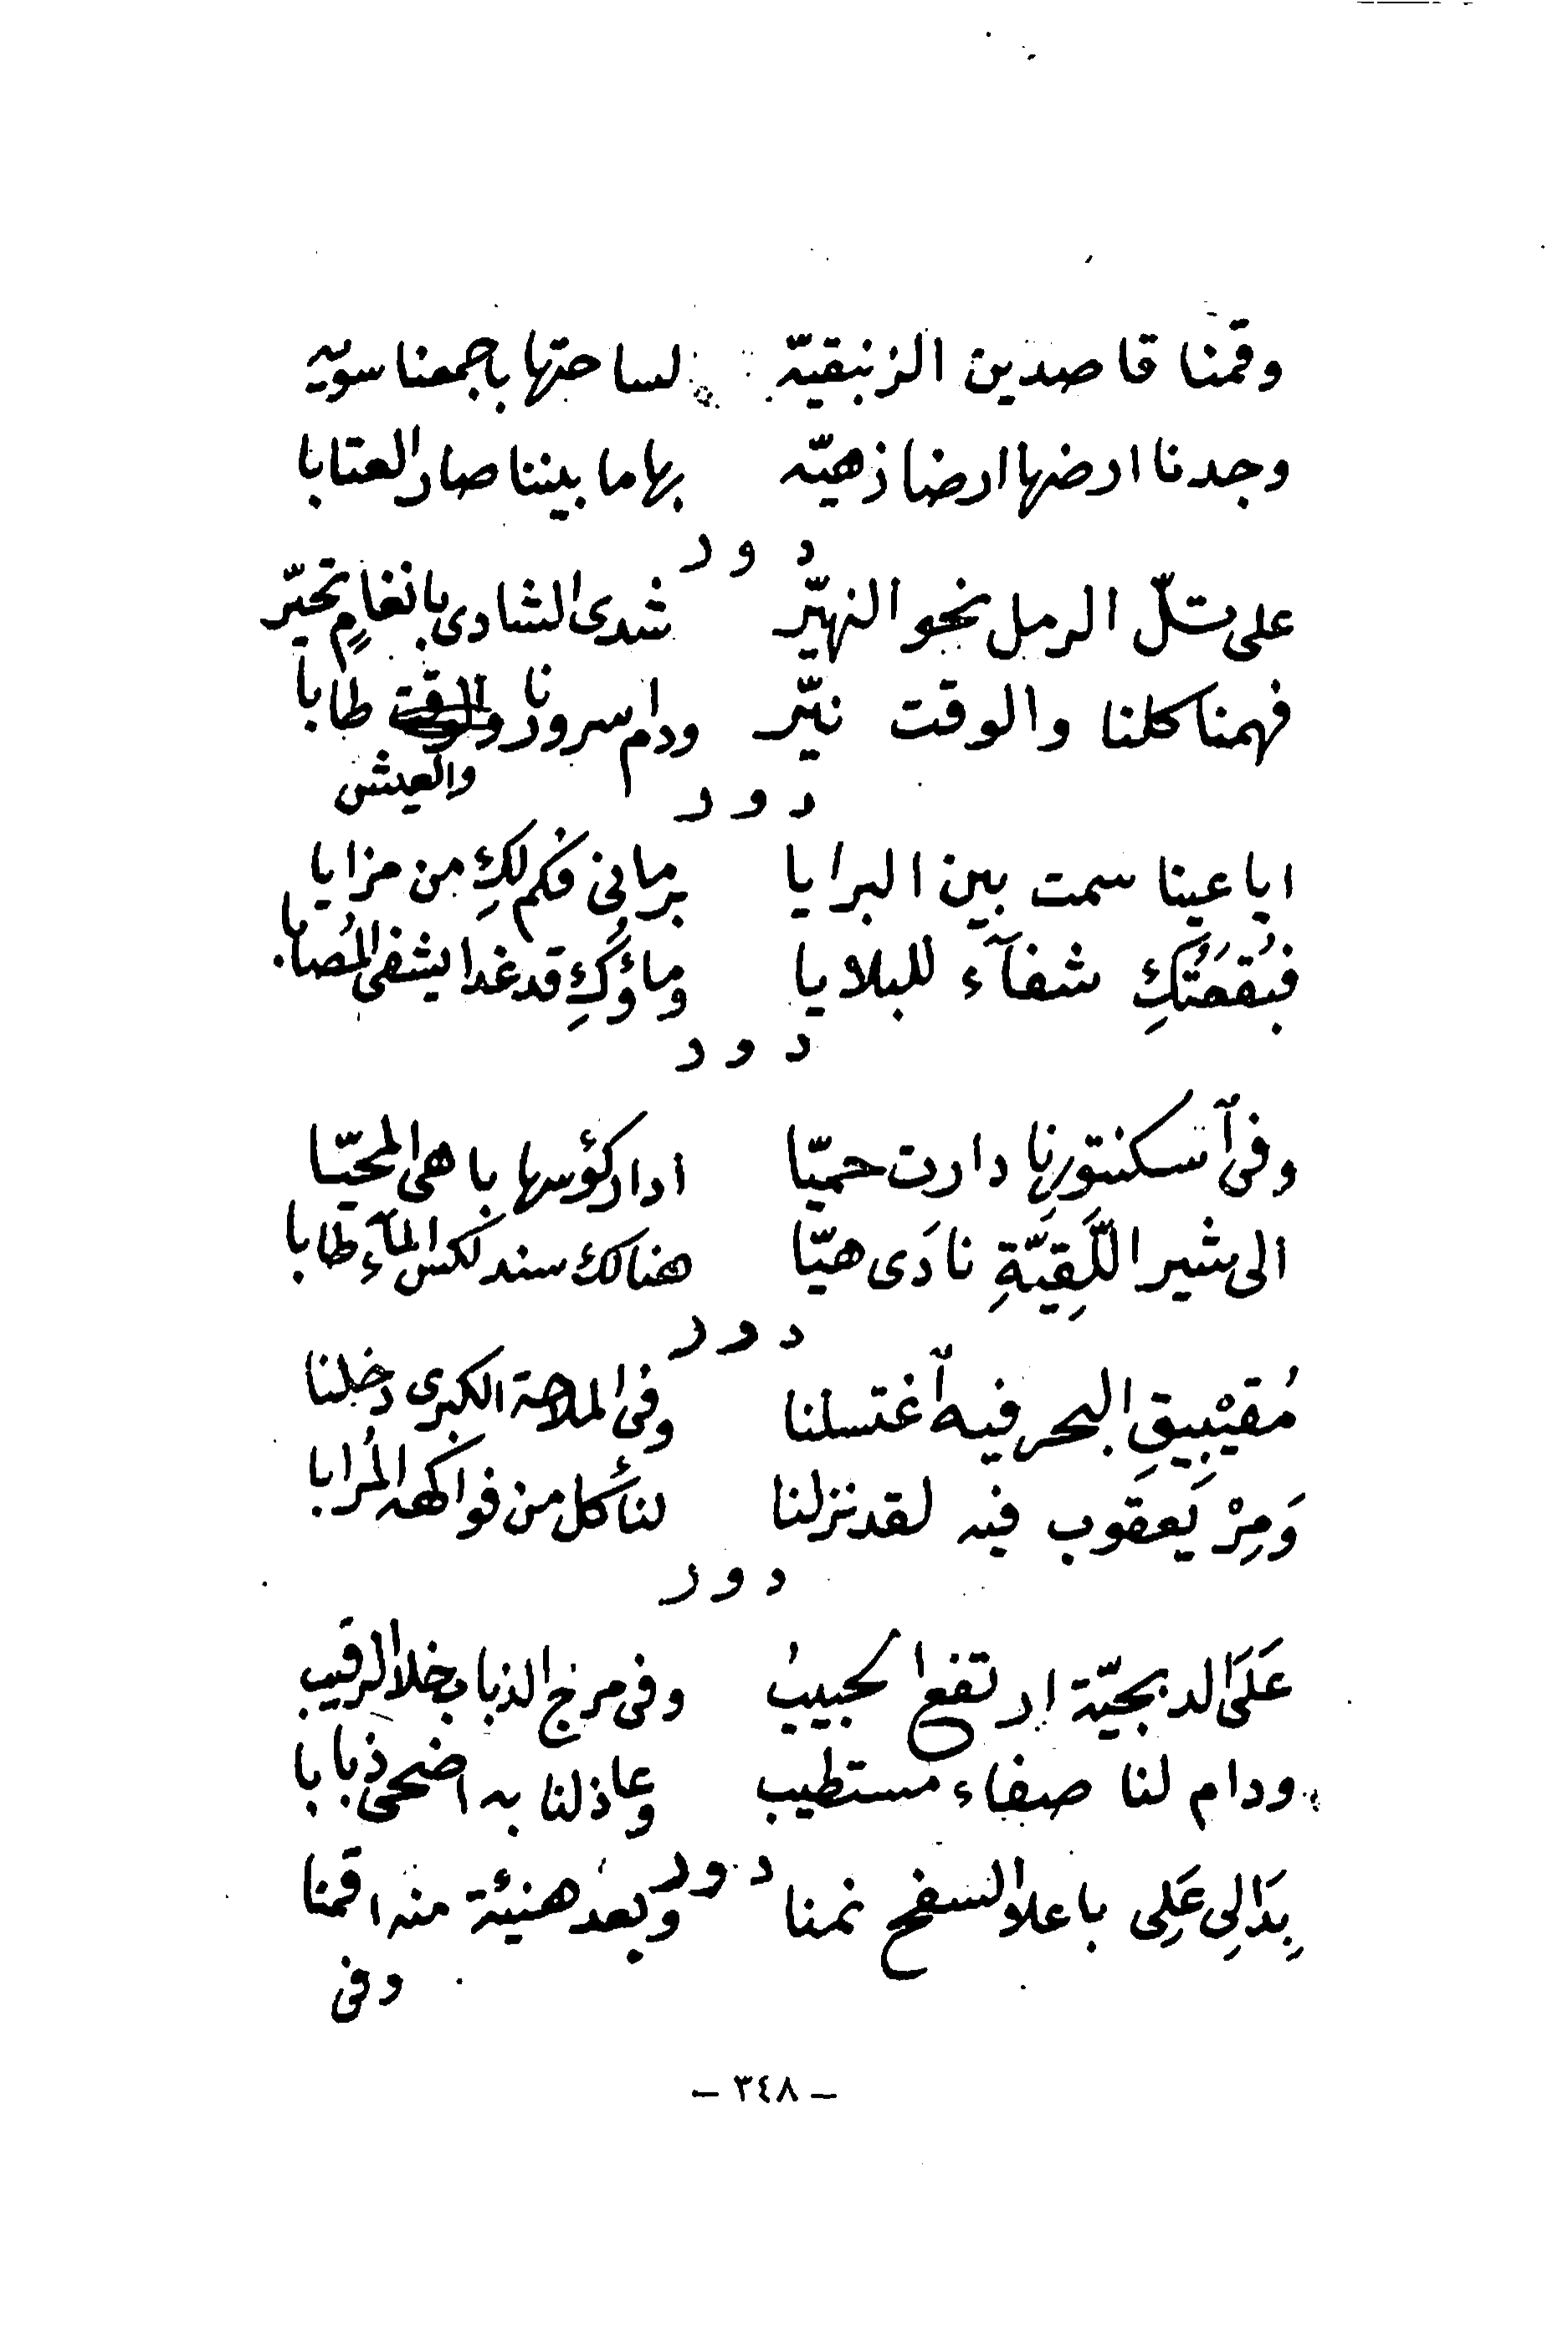 وقمنا قاصدين الزنبقيّه لساحتها باجمعنا سويه
وجدنا ارضها ارضا زهيّه بها ما بيننا صار العتابا
دور
على تلّ الرمل نحو النهيّر شدى الشادى بانغامٍ تحيّر
فهمنا كلنا والوقت نيّر ودام سرورنا والوقت طابا
والعيش
دور
ايا عينا سمت بين البرايا برمانى فكم لكِ من مزايا
فبُقعَتُكِ شفآء للبلايا وماؤُكِ قد غدا يشفى المُصابا
دور
وفى آسكنتورنا دارت حميّا ادار كؤسها باهى المحيّا
الى شير اللَّقِيَّةِ نادَى هيّا هنالك سندلكس المآء طابا
دور
مُقيْبِيقِ البحر فيه ٱغتسلنا وفى الملاحة الكبرى دخلنا
وَمِرْ يَعقوب فيه لقد نزلنا لنأكل من فواكهه المُرابا
دور
عَلَى الدبجيّة ارتفع الحبيبُ وفى مرج الذباب خلا الرقيب
ودام لنا صفاء مستطيب وعاذلنا به اضحى ذبابا
دور
بِدَالِى عَلِى باعلا السفح نمنا وبعد هنيئة منه اقمنا
وفى
– ٣٤٨ –